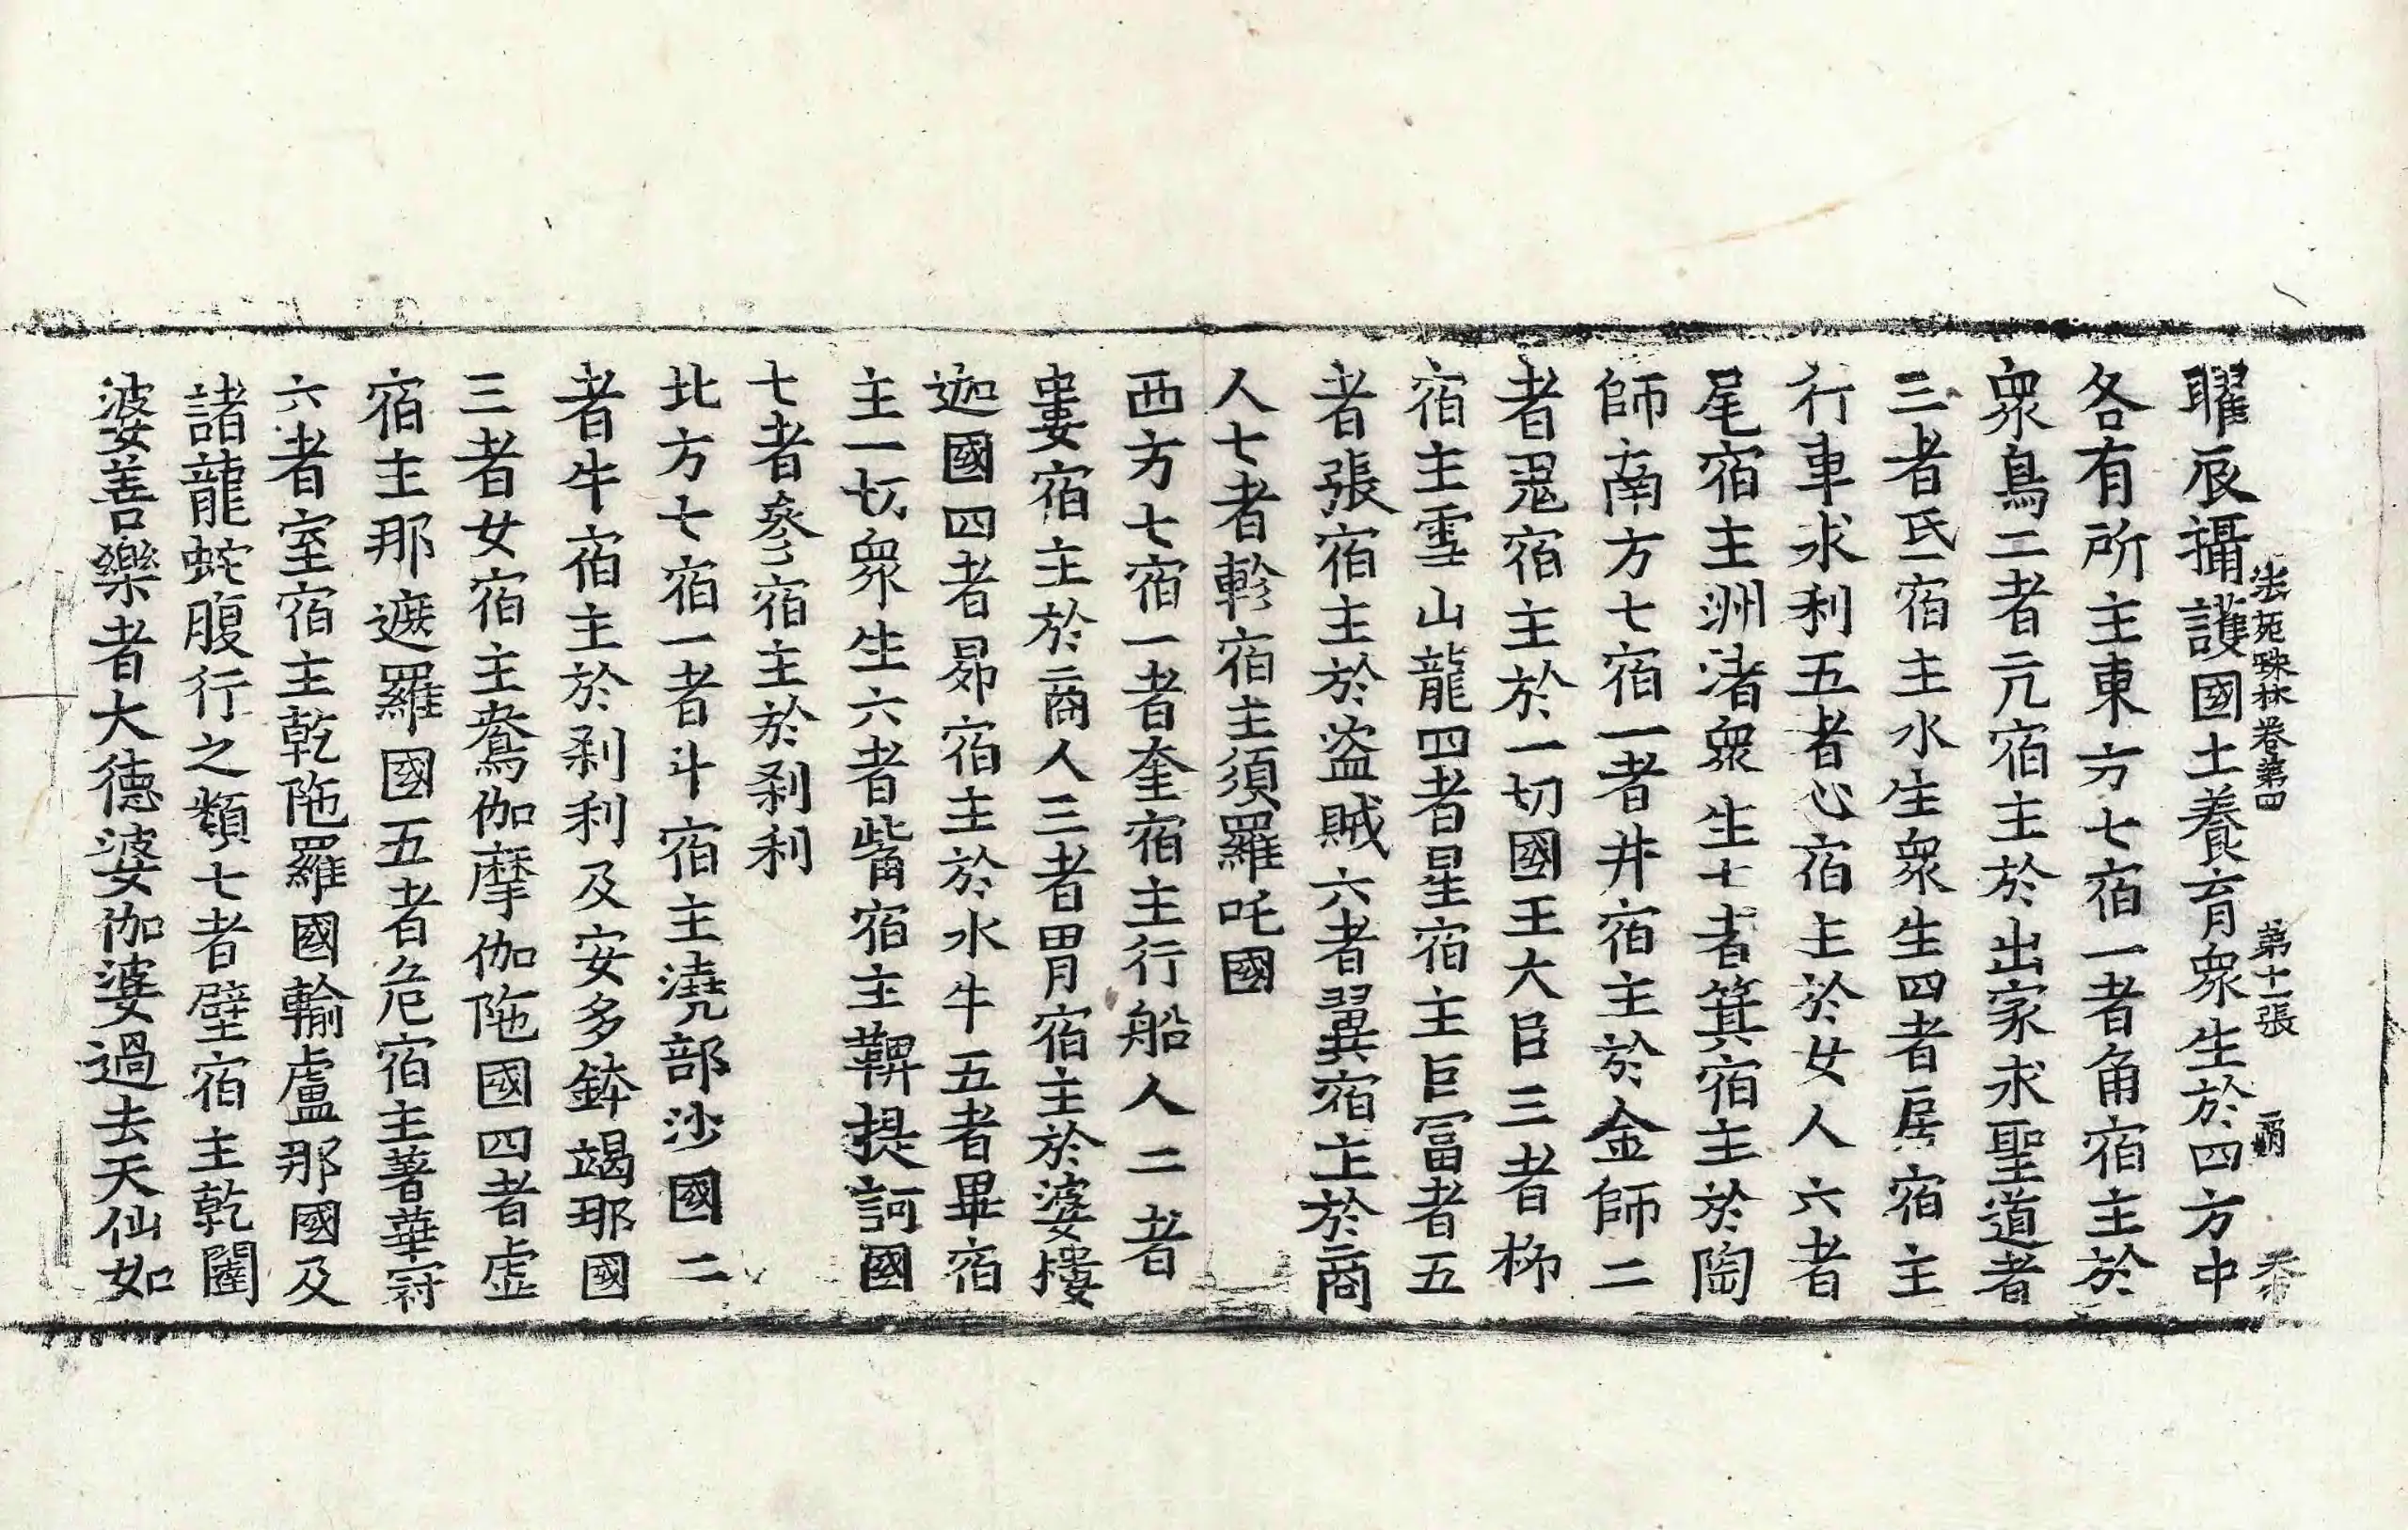 曜辰攝護國土養育衆生於四方中
法苑珠林卷第四 第十一張
各有所主東方七宿一者角宿主於
衆鳥二者亢宿主於出家求聖道者
三者氐宿主水生衆生四者房宿主
行車求利五者心宿主於女人六者
尾宿主洲渚衆生七者箕宿主於陶
師南方七宿一者井宿主於金師二
者鬼宿主於一切國王大臣三者柳
宿主雪山龍四者星宿主巨富者五
者張宿主於盜賊六者翼宿主於商
人七者軫宿主須羅吒國
西方七宿一者奎宿主行船人二者
婁宿主於商人三者胃宿主於婆樓
迦國四者昴宿主於水牛五者畢宿
主一切衆生六者觜宿主鞞提訶國
七者參宿主於剎利
北方七宿一者斗宿主澆部沙國二
者牛宿主於剎利及安多鉢竭那國
三者女宿主鴦伽摩伽陁國四者虛
宿主那遮羅國五者危宿主著華冠
六者室宿主乾陁羅國輸盧那國及
諸龍蛇腹行之類七者壁宿主乾闥
婆善樂者大德婆伽婆過去天仙如